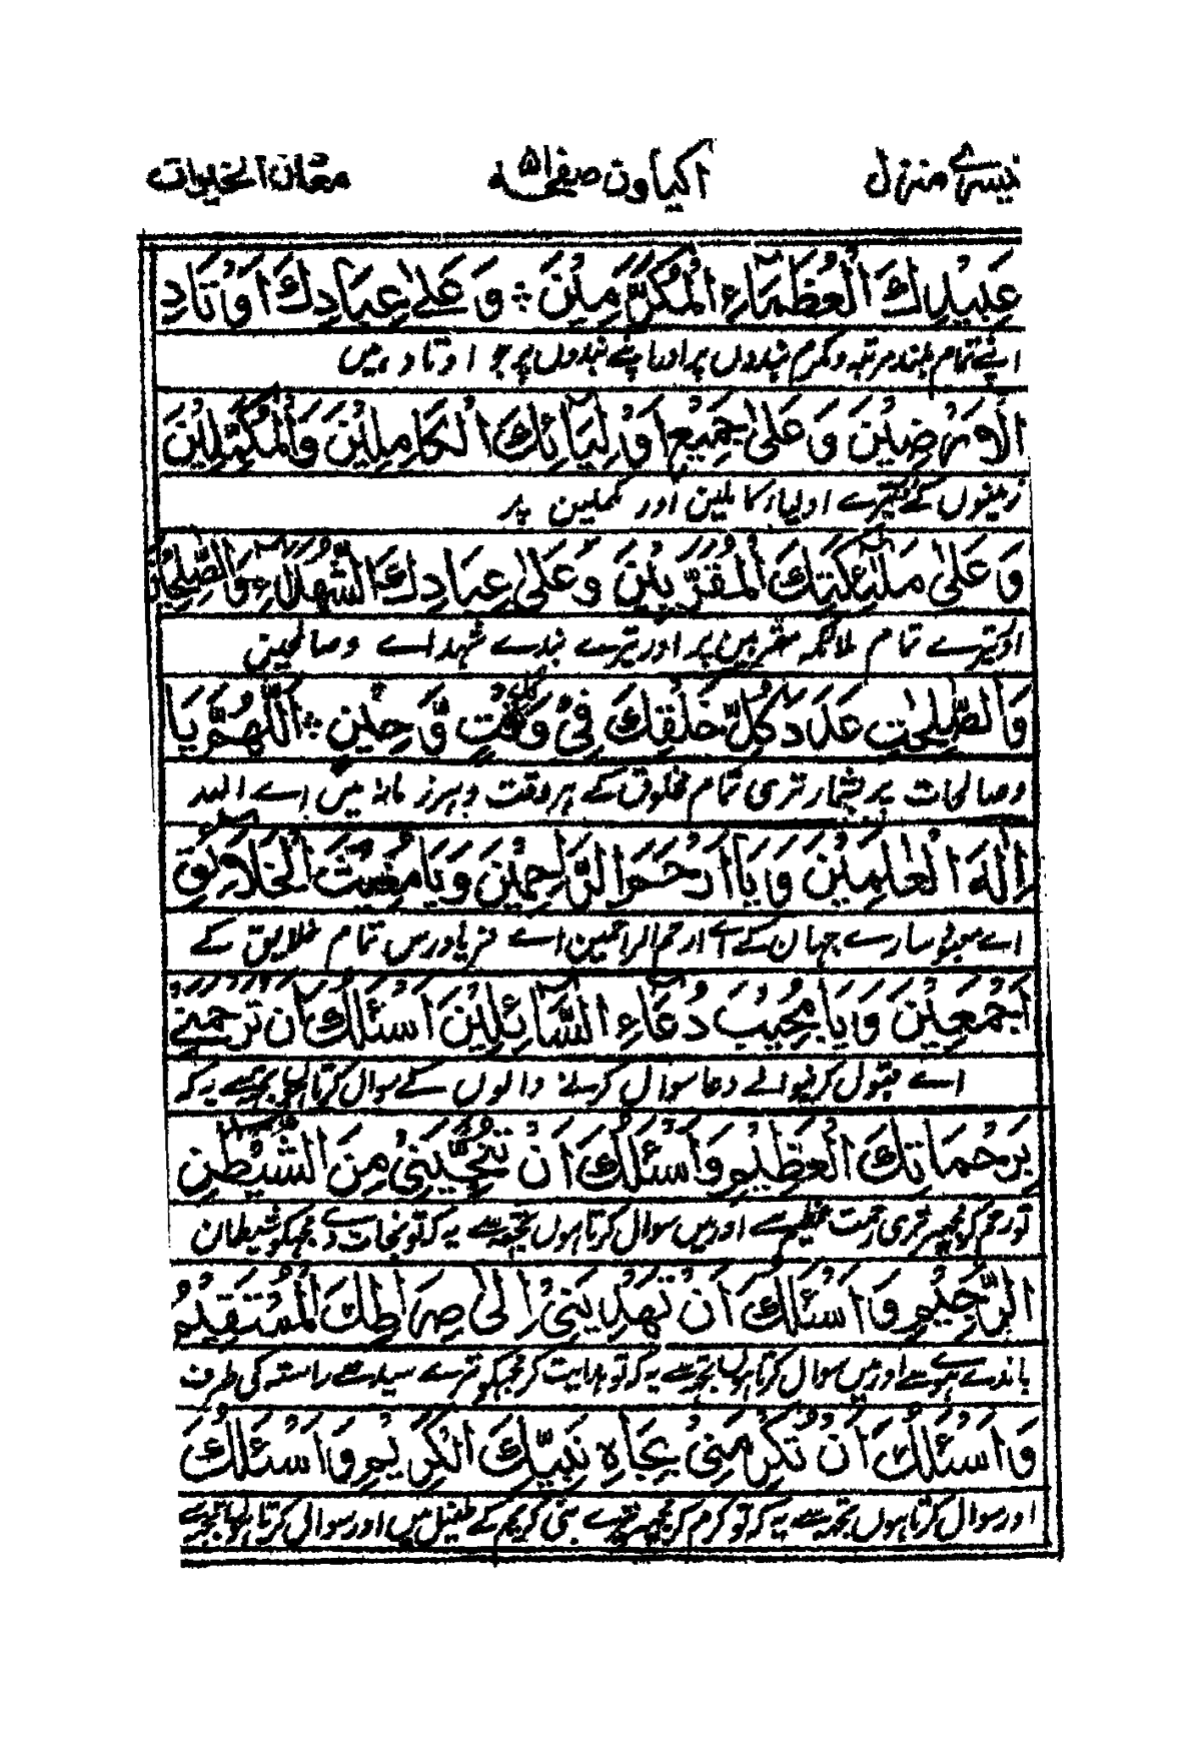 تیسرے منزل اکیاون صفحہ ۵۱ معدن الخیرات
عَبِيْدِكَ الْعُظَمَآءِ الْمُكَرَّمِيْنَ ۞ وَعَلٰى عِبَادِكَ اَوْتَادِ
اپنے تمام بلند مرتبہ و مکرم بندوں پر اور اپنے بندوں پر جو اوتاد ہیں
الْاَرَضِيْنَ وَعَلٰى جَمِيْعِ اَوْلِيَآئِكَ الْكَامِلِيْنَ وَالْمُكَمَّلِيْنَ
زمینوں کے تیرے اولیاء کاملین اور مکملین پر
وَعَلٰى مَلٰٓئِكَتِكَ الْمُقَرَّبِيْنَ وَعَلٰى عِبَادِكَ الشُّهَدَآءِ وَالصّٰلِحِيْنَ
اور تیرے تمام ملائکہ مقربین پر اور تیرے بندے شہداے و صالحین
وَالصّٰلِحٰتِ عَدَدَ كُلِّ خَلْقِكَ فِيْ كُلِّ وَقْتٍ وَّحِيْنٍ ۞ اَللّٰهُمَّ يَا
و صالحات پر بیشمار تری تمام مخلوق کے ہر وقت و ہر زمانہ میں اے اللہ
اِلٰهَ الْعٰلَمِيْنَ وَيَا اَرْحَمَ الرَّاحِمِيْنَ وَيَا مُغِيْثَ الْخَلَائِقِ
اے معبود سارے جہان کے اے ارحم الراحمین اے فریادرس تمام خلایق کے
اَجْمَعِيْنَ وَيَا مُجِيْبَ دُعَآءِ السَّآئِلِيْنَ اَسْئَلُكَ اَنْ تَرْحَمَنِيْ
اے قبول کرنیوالے دعا سوال کرنے والوں کے سوال کرتا ہوں تجھسے یہ کہ
بِرَحْمَاتِكَ الْعَظِيْمِ وَاَسْئَلُكَ اَنْ تُنَجِّيَنِيْ مِنَ الشَّيْطٰنِ
تو رحم کر مجھپر تری رحمت عظیم سے اور میں سوال کرتا ہوں تجھ سے یہ کہ تو نجات دے مجھکو شیطان
الرَّجِيْمِ وَاَسْئَلُكَ اَنْ تَهْدِيَنِيْ اِلٰى صِرَاطِكَ الْمُسْتَقِيْمِ
راندے ہوے سے اور میں سوال کرتا ہوں تجھ سے یہ کہ تو ہدایت کر مجھکو ترے سیدھے راستہ کی طرف
وَاَسْئَلُكَ اَنْ تُكْرِمَنِيْ بِجَاهِ نَبِيِّكَ الْكَرِيْمِ وَاَسْئَلُكَ
اور سوال کرتا ہوں تجھ سے یہ کہ تو کرم کر مجھپر تیرے نبی کریم کے طفیل میں اور سوال کرتا ہوں تجھ سے